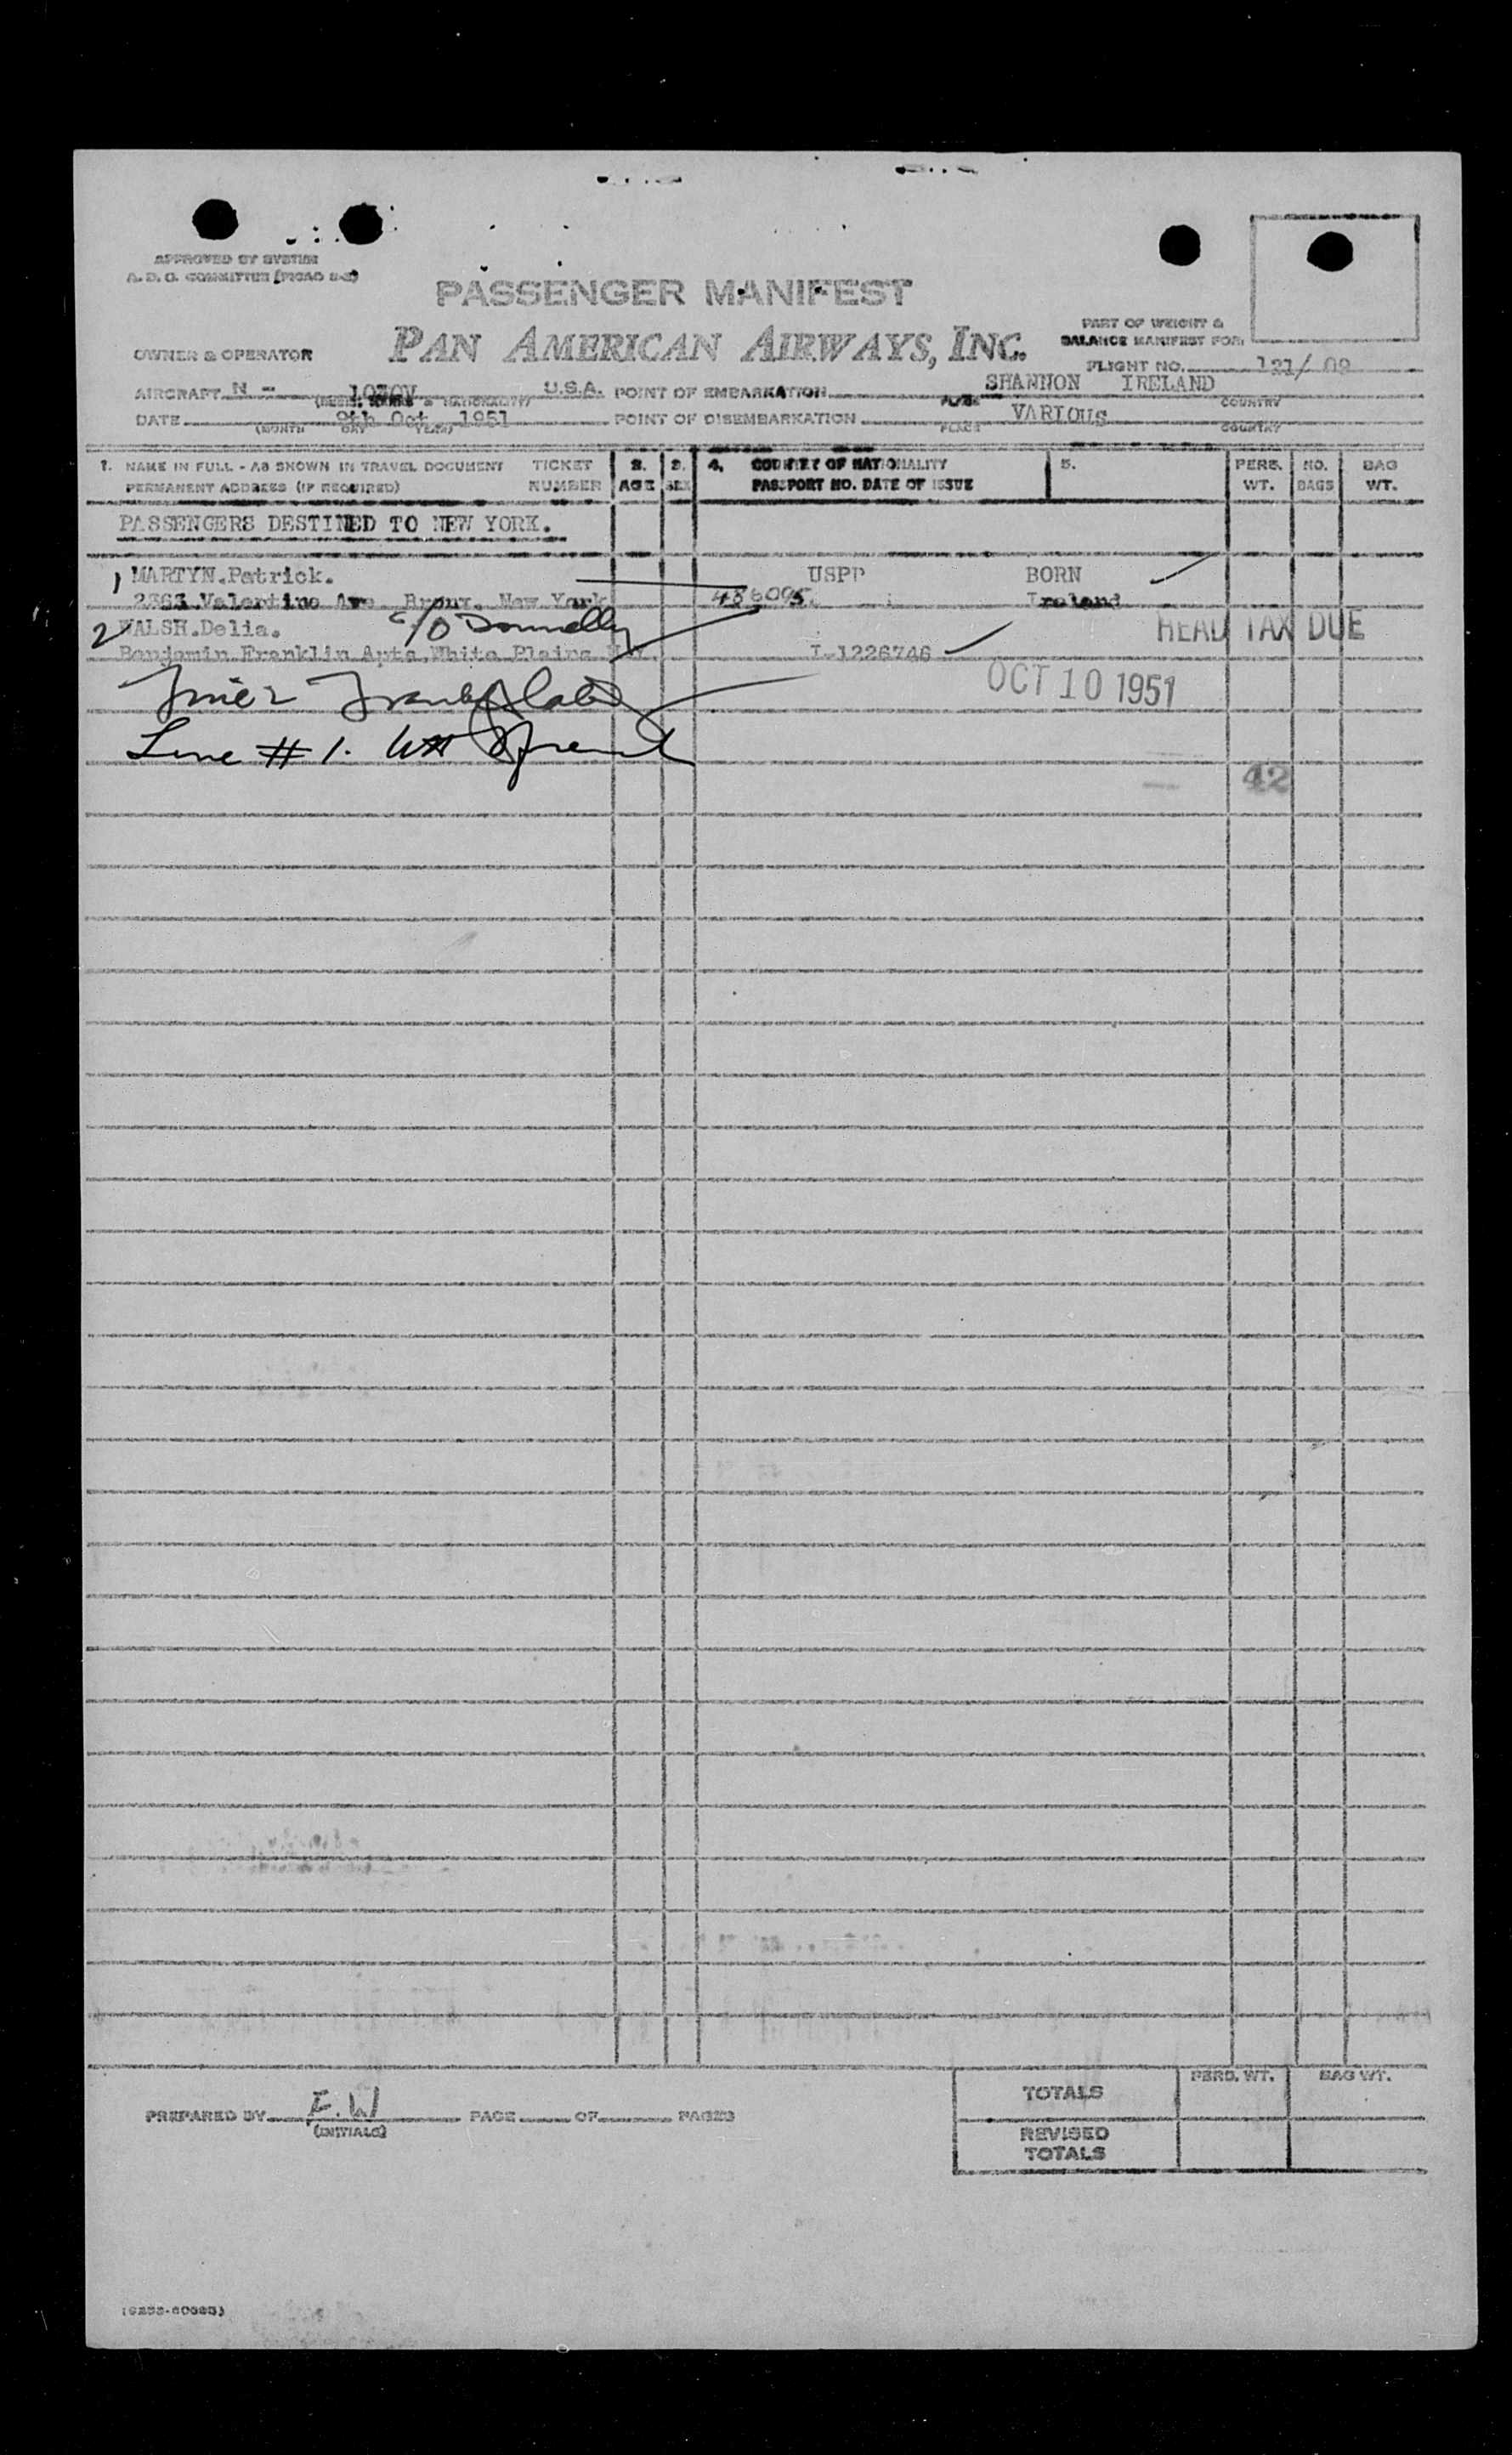 APPROVED BY SYSTEM
A.D.O. COMMITTEE (PICAO 2-3)
PASSENGER MANIFEST
PAN AMERICAN AIRWAYS, INC.
PART OF WEIGHT &
BALANCE MANIFEST FOR:
OWNER & OPERATOR
FLIGHT NO. 121/ 09
AIRCRAFT N - U.S.A. POINT OF EMBARKATION SHANNON IRELAND
PLACE COUNTRY
DATE 9th Oct 1951 POINT OF DISEMBARKATION VARIOUS
(MONTH DAY YEAR) PLACE COUNTRY
1. NAME IN FULL - AS SHOWN IN TRAVEL DOCUMENT TICKET 2. 3. 4. COUNTRY OF NATIONALITY 5. PERS. NO. BAG
PERMANENT ADDRESS (IF REQUIRED) NUMBER AGE SEX PASSPORT NO. DATE OF ISSUE WT. BAGS WT.
PASSENGERS DESTINED TO NEW YORK.
1 MARTYN.Patrick. USPP BORN
Valentine Ave Bronx, New York 486095 Ireland
2 WALSH.Delia. c/o Donnelly HEAD TAX DUE
Benjamin Franklin Apts.White Plains N.Y. I-1226746
OCT 10 1951
Line # 1.
42
PREPARED BY E.W PAGE OF PAGES
(INITIALS)
TOTALS PERS. WT. BAG WT.
REVISED
TOTALS